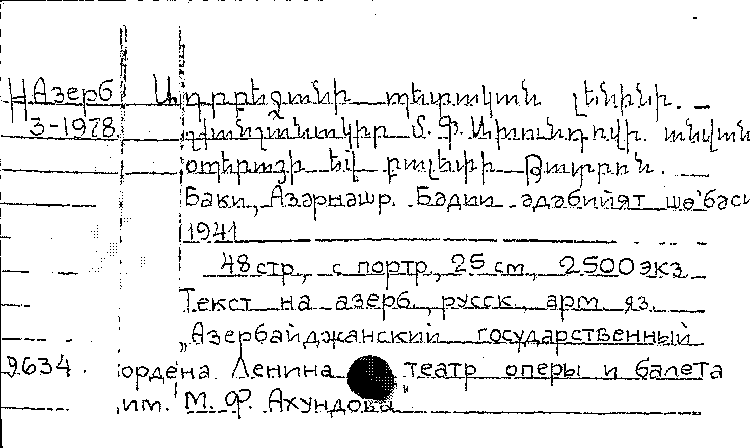 Азерб Ադրբեջանի պետական լենինի.
3-1978 դրանշանակիր Մ. Ֆ. Ախունդովի. անվան
օպերայի եվ բալետի Թատրոն.
Баки, Азәрнәшр. Бәдии әдәбийят шө'бәси
1941
48 стр., с портр., 25 см., 2500 экз
Текст на азерб., русск., арм. яз.
„Азербайджанский государственный
9634. ордена Ленина театр оперы и балета
им. М. Ф. Ахундова"